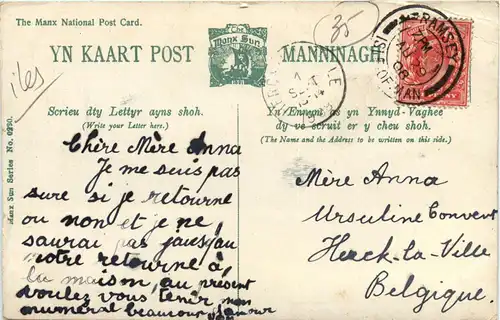 The Manx National Post Card.
35
YN KAART POST
The
Manx Sun
MANNINAGH
RAMSEY
ISLE OF MAN
iles
Scrieu dty Lettyr ayns shoh.
(Write your Letter here.)
Yn Ennym as yn Ynnyd-Vaghee
dy ve scruit er y cheu shoh.
(The Name and the Address to be written on this side.)
Manx Sun Series No. 6290.
Chère Mère Anna
Je me suis pas
sure si je retourne
ou non et je ne
saurai pas
votre retourne à
la maison, au présent
voulez vous tenir mon
numeral beaucoup d'amour
Mère Anna
Ursuline Convent
Haeck-la-Ville
Belgique.